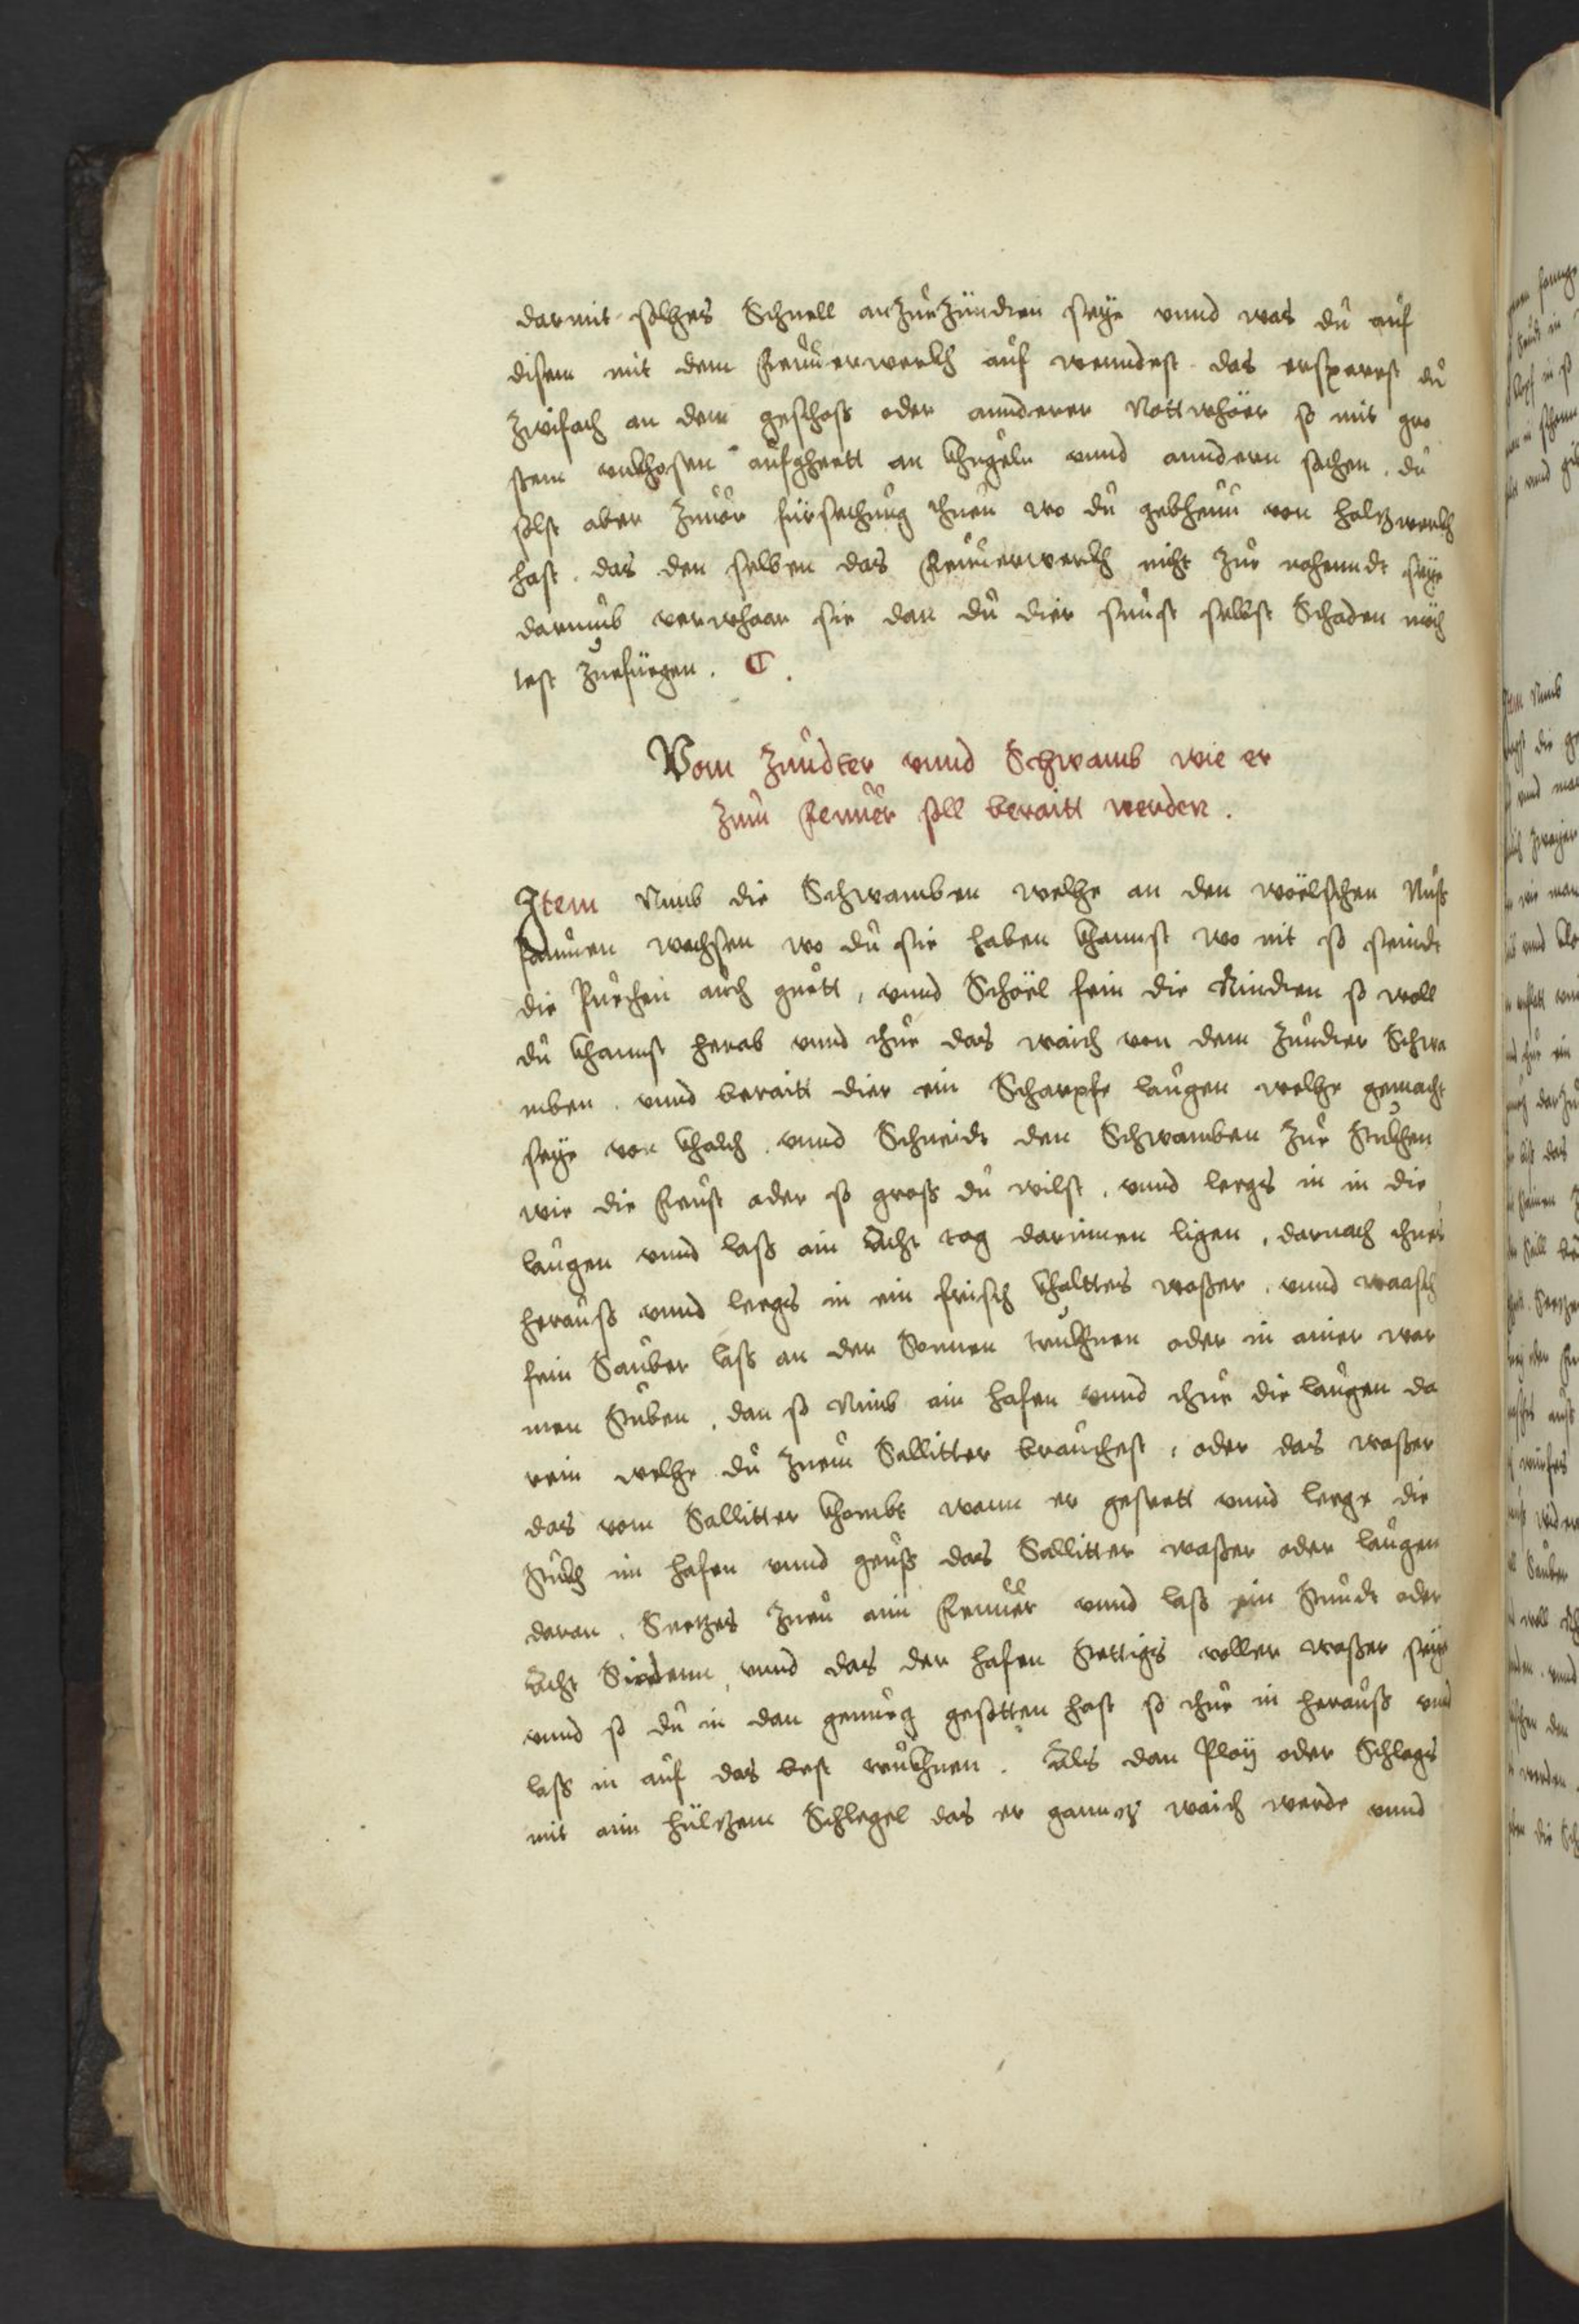 darmit solhes Schnell anzuezündten seÿe vnnd was du auf
disem mit dem Feuuerwerkh auf wenndest das ersparest du
Zwifach an dem geschoß oder annderer Nottwhöer so mit gro
ssem vnkhosten aufgheett an khuglen vnnd anndern sachen. du
solst aber Zuuor fürsechung thuen wo du gebheuu von holtzwerkh
hast. das den selben das Feuuerwerkh nicht zue nahenndt seÿe
darumb verwhaar sie dan du dier sunst selbst Schaden möch
test Zuefüegen. C.
Vom Zundter vnnd Schwamb wie er
Zum Feuuer soll beraitt werden.
Item Nimb die Schwamben welhe an den wöelschen Nuß
paumen wachsen wo du sie haben khannst wo nit so seindt
die Puechen auch guett, vnnd Schöel fein die Rindten so woll
du khannst herab vnnd thue das waich von dem Zundter Schwa
mben. vnnd beraitt dier ein Scharpfe laugen welhe gemacht
seÿe von khalch. vnnd Schneide den Schwamben Zue Stukhen
wie die Feust oder so groß du wilst. vnnd leegs in in die
laugen vnnd laß ain Acht tag darinnen ligen, darnach thues
herauß vnnd leegs in ein frisch khalttes waßer. vnnd waasch
fein Sauber laß an der Sonnen trukhnen oder in ainer war
men Stuben. dan so Nimb ain hafen vnnd thue die laugen da
rein welhe du Zuem Sallitter brauchest. oder das waßer
das vom Sallitter khombt wann er geseett vnnd leege die
Stukh in hafen vnnd geuß das Sallitter waßer oder laugen
daran. Seetzes Zueu aim Feuuer vnnd laß ein Stundt oder
Acht Siedenn, vnnd das der hafen Stettigs voller waßer seÿe
vnnd so du in dan genueg gesotten hast so thue in herauß vnnd
laß in auf das best trukhnen. Als dan Ploÿ oder Schlags
mit aim hültzem Schlegel das er ganntz waich werde vnnd